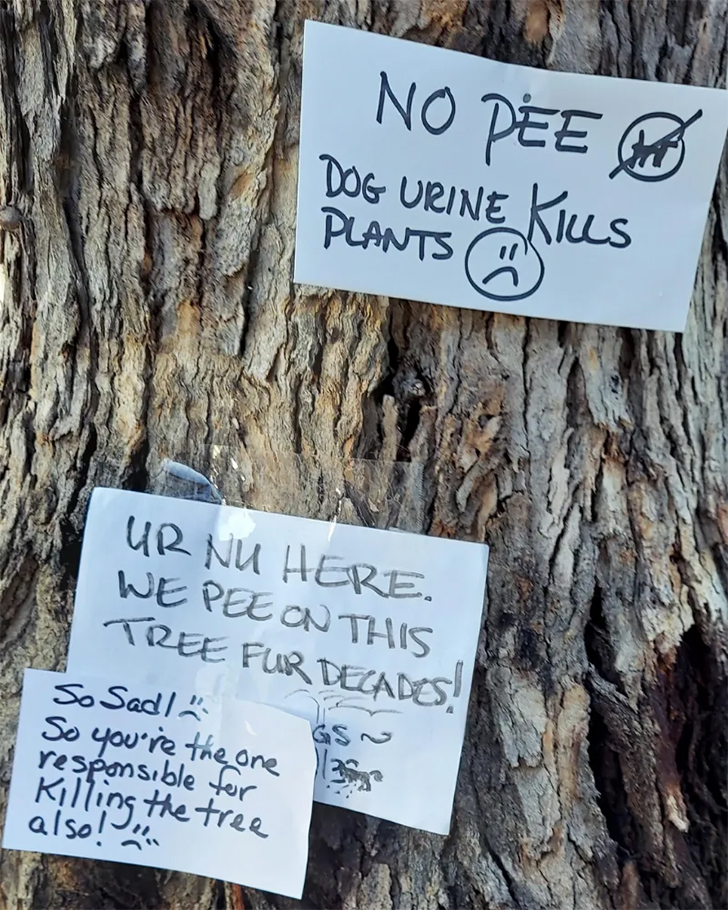 NO PEE
DOG URINE KILLS
PLANTS
UR NU HERE.
WE PEE ON THIS
TREE FUR DECADES!
GS ~
So Sad!
So you're the one
responsible for
Killing the tree
also!